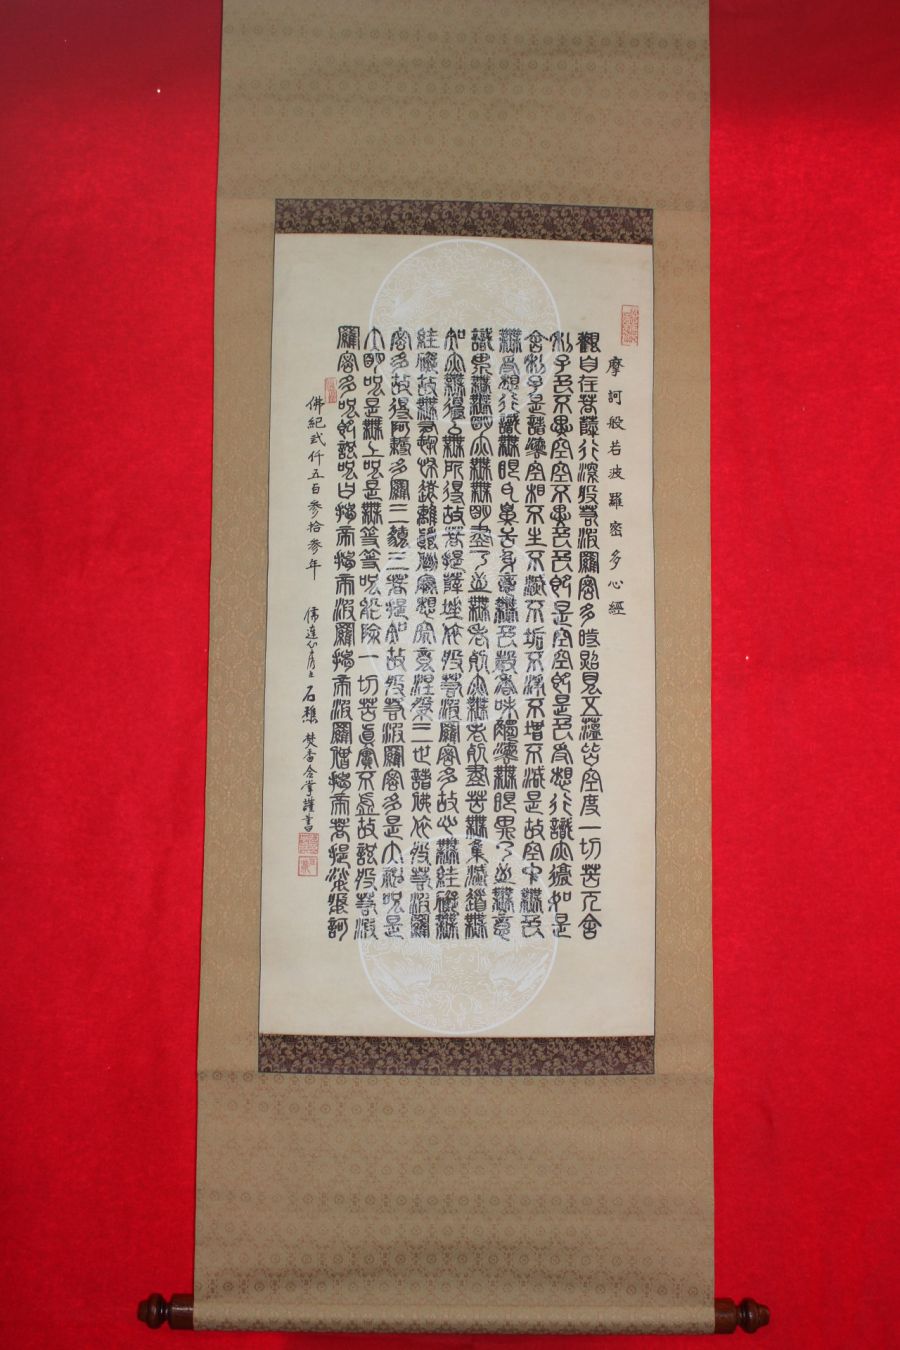 摩訶般若波羅密多心經
觀自在菩薩行深般若波羅密多時照見五蘊皆空度一切苦厄舍
利子色不異空空不異色色即是空空即是色受想行識亦復如是
舍利子是諸法空相不生不滅不垢不淨不增不減是故空中無色
無受想行識無眼耳鼻舌身意無色聲香味觸法無眼界乃至無意
識界無無明亦無無明盡乃至無老死亦無老死盡無苦集滅道無
知亦無得以無所得故菩提薩埵依般若波羅密多故心無罣礙無
罣礙故無有恐怖遠離顛倒夢想究竟涅槃三世諸佛依般若波羅
密多故得阿耨多羅三藐三菩提故知般若波羅密多是大神咒是
大明咒是無上咒是無等等咒能除一切苦真實不虛故說般若波
羅密多咒即說咒曰揭帝揭帝波羅揭帝波羅僧揭帝菩提薩婆訶
佛紀弍仟五百参拾参年 佛蓮心房主 石樵 焚香合掌謹書